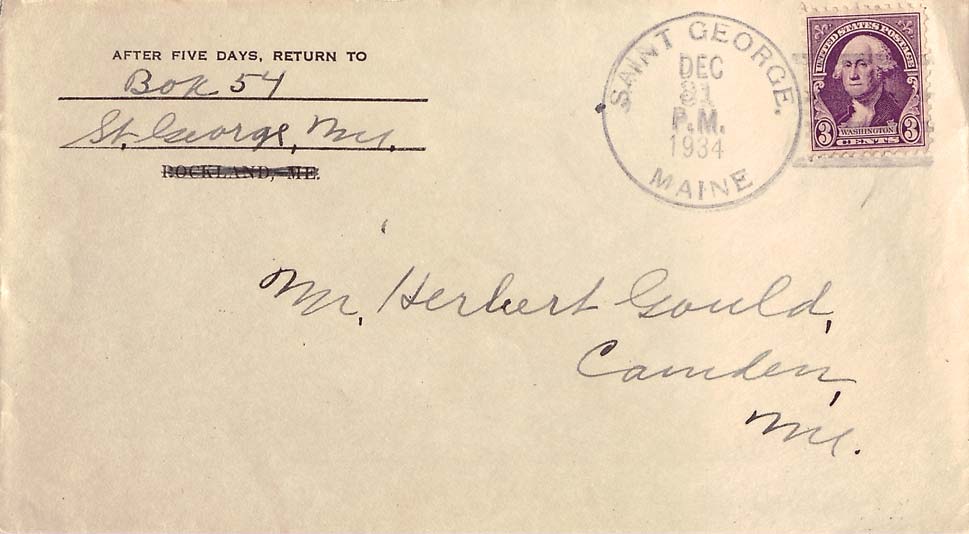 AFTER FIVE DAYS, RETURN TO
Box 54
St. George, Me.
ROCKLAND, ME.
SAINT GEORGE,
DEC
31
P.M.
1934
MAINE
UNITED STATES POSTAGE
3 WASHINGTON 3
CENTS
Mr. Herbert Gould,
Camden,
Me.